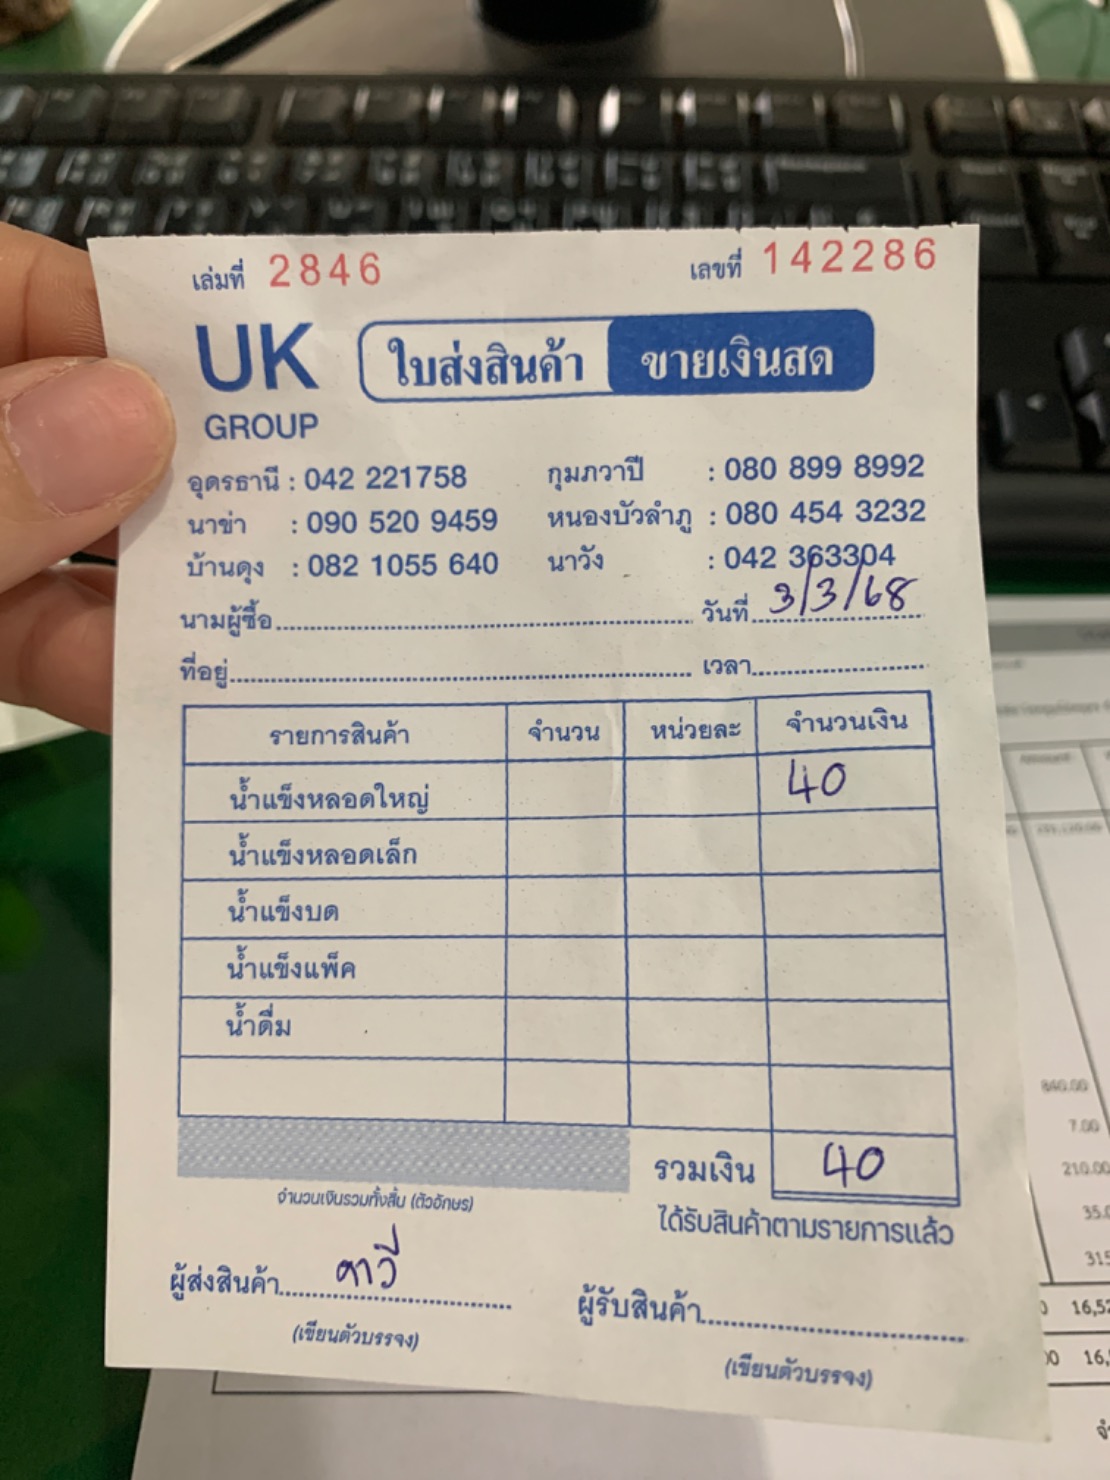 เล่มที่ 2846 เลขที่ 142286
UK GROUP
ใบส่งสินค้า ขายเงินสด
อุดรธานี : 042 221758 กุมภวาปี : 080 899 8992
นาข่า : 090 520 9459 หนองบัวลำภู : 080 454 3232
บ้านดุง : 082 1055 640 นาวัง : 042 363304
นามผู้ซื้อ วันที่ 3/3/68
ที่อยู่ เวลา
รายการสินค้า จำนวน หน่วยละ จำนวนเงิน
น้ำแข็งหลอดใหญ่ 40
น้ำแข็งหลอดเล็ก
น้ำแข็งบด
น้ำแข็งแพ็ค
น้ำดื่ม
รวมเงิน 40
จำนวนเงินรวมทั้งสิ้น (ตัวอักษร)
ได้รับสินค้าตามรายการแล้ว
ผู้ส่งสินค้า ผู้รับสินค้า
(เขียนตัวบรรจง) (เขียนตัวบรรจง)
840.00
7.00
210.00